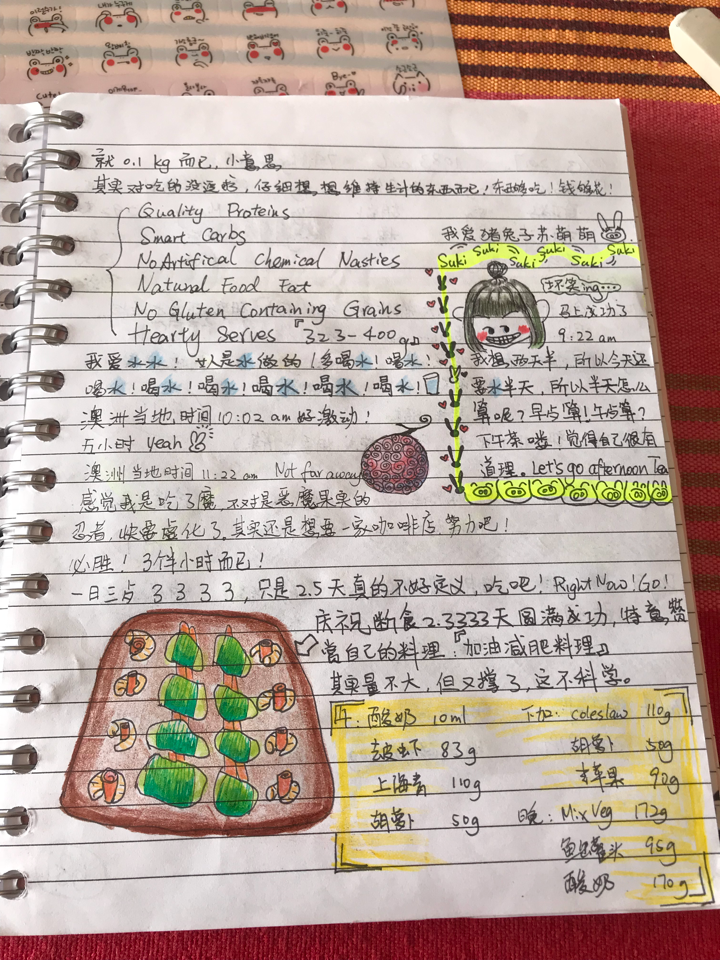 Cute!
Bye~
就 0.1 kg 而已, 小意思
其实对吃的没这么好, 仔细想想维持生计的东西而已! 东西够吃! 钱够花!
Quality Proteins
Smart Carbs
No Artifical Chemical Nasties
Natural Food Fat
No Gluten Containing Grains
Hearty Serves 『323-400g』
我爱水水! 女人是水做的! 多喝水! 喝水!
喝水! 喝水! 喝水! 喝水! 喝水! 喝水!
澳洲当地时间 10:02 am 好激动!
五小时 Yeah
澳洲当地时间 11:22 am Not far away
感觉我是吃了魔, 不对是恶魔果实的
忍者, 快要虚化了, 其实还是想要一家咖啡店, 努力吧!
必胜! 3个半小时而已!
一日三点 3 3 3 3, 只是 2.5 天真的不好定义, 吃吧! Right Now! Go!
我爱猪兔子苏萌萌
Suki Suki Suki Suki Suki Suki
坏笑ing...
马上成功了
9:22 am
我想, 两天半, 所以今天还
要水半天, 所以半天怎么
算呢? 早点算! 午点算?
下午茶喽! 觉得自己很有
道理. Let's go afternoon Tea
庆祝断食 2.3333天圆满成功, 特意赞
赏自己的料理:『加油减肥料理』
其实量不大, 但又撑了, 这不科学。
午: 酸奶 10ml
去皮虾 83g
上海青 110g
胡萝卜 50g
下加: coleslaw 110g
胡萝卜 50g
青苹果 90g
晚: Mix Veg 172g
鱼罐头 95g
酸奶 170g